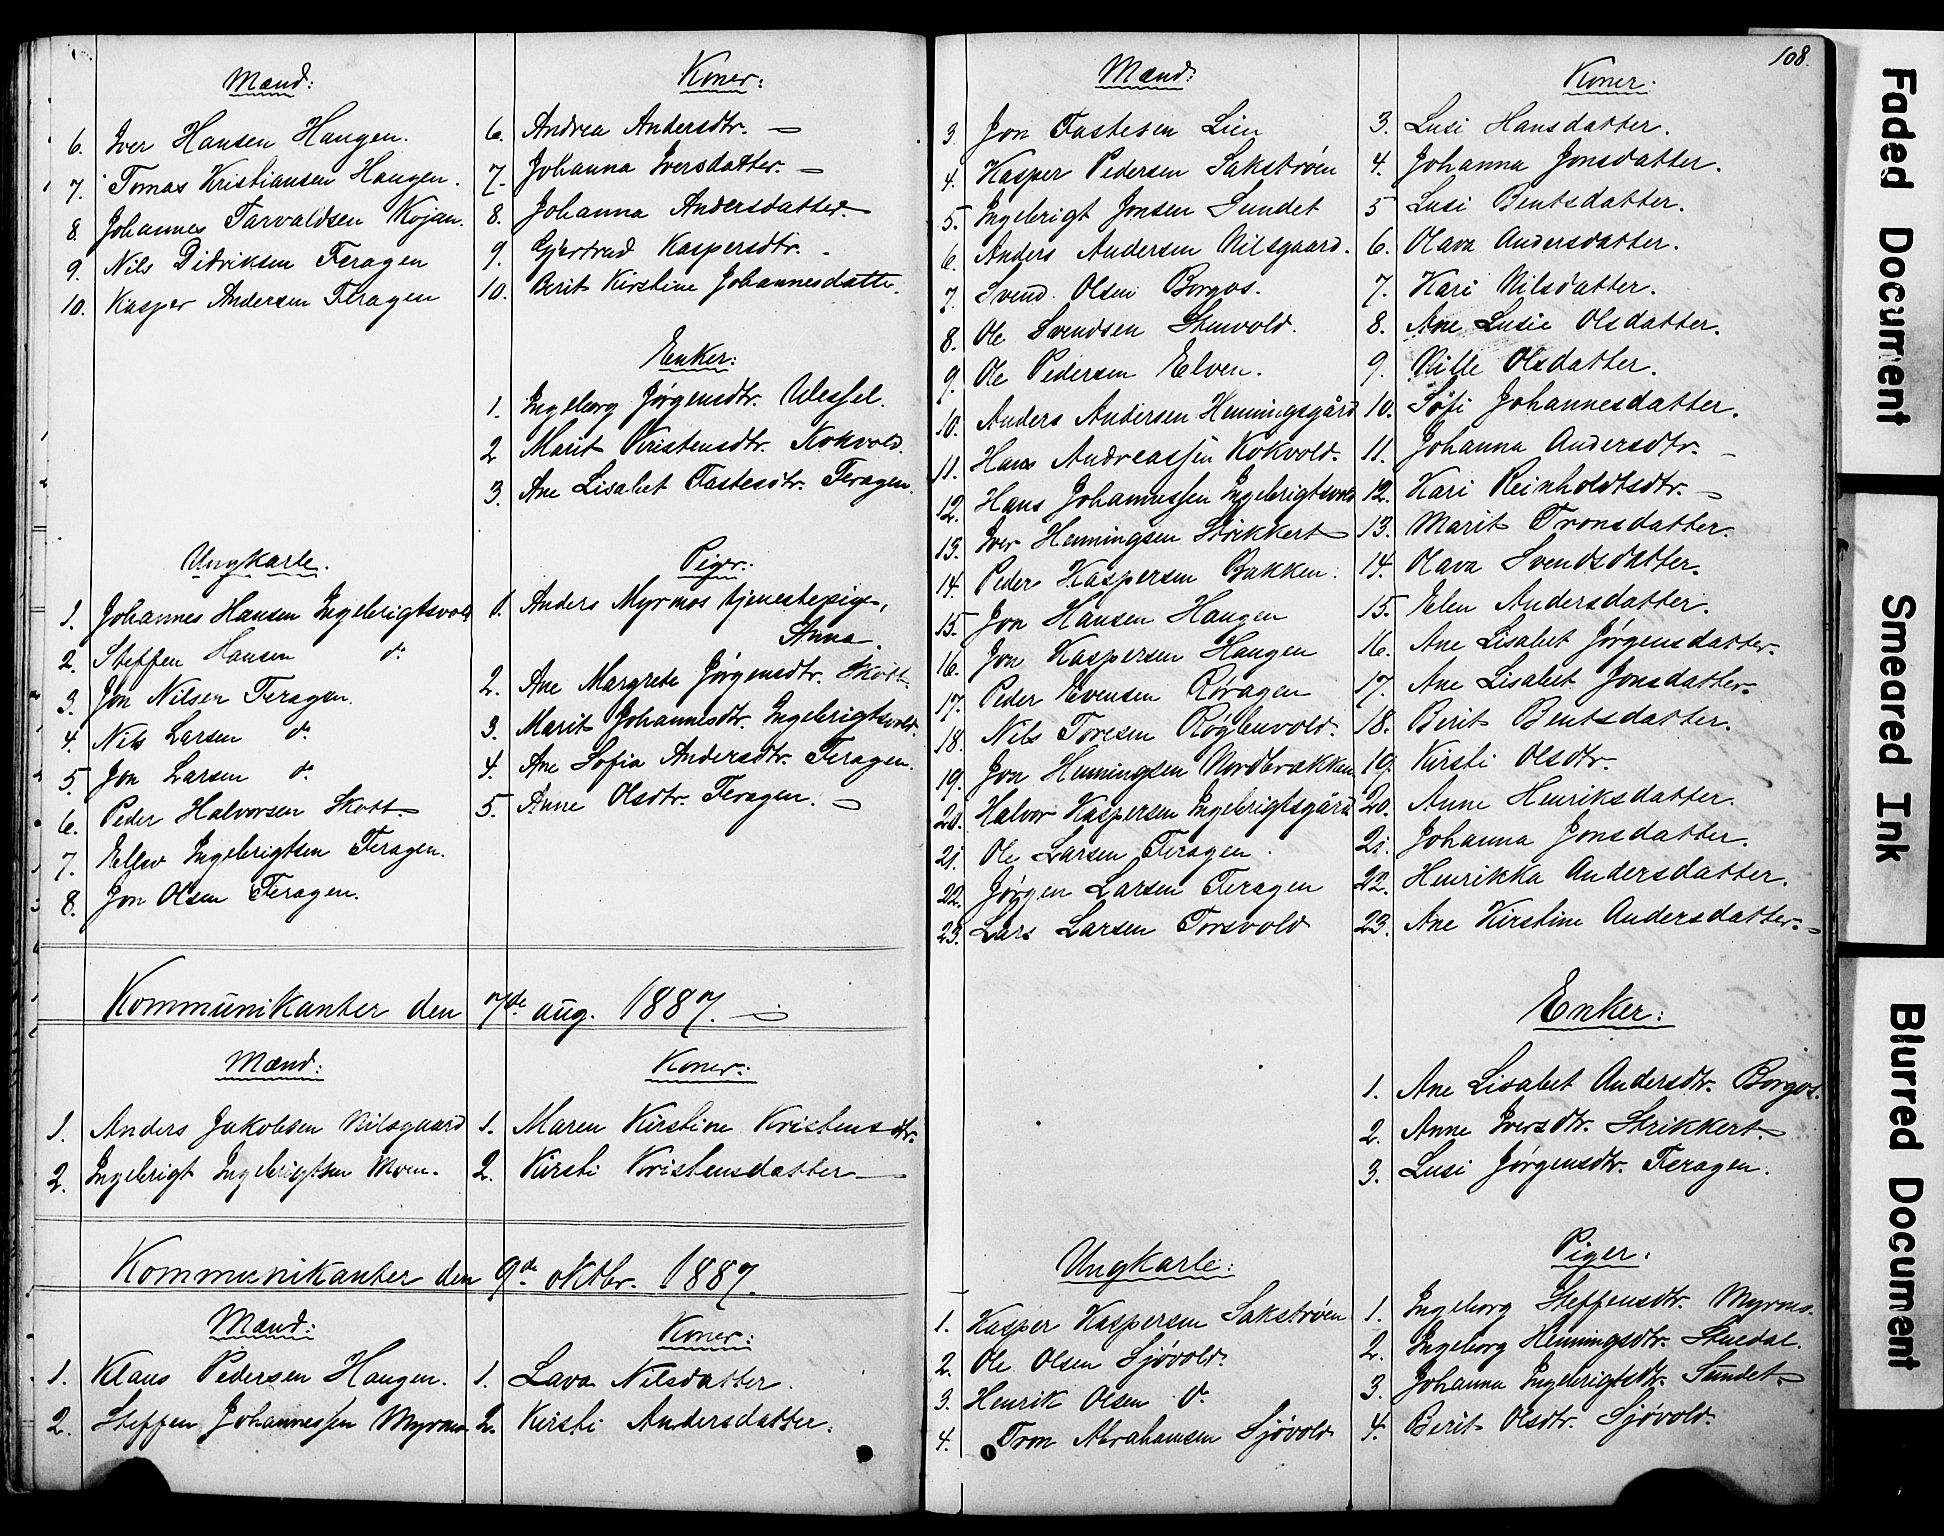 Mænd:
6. Iver Hansen Haugen.
7. Tomas Kristiansen Haugen.
8. Johannes Tarvaldsen Kojan.
9. Nils Didriksen Feragen
10. Kasper Andersen Feragen
Koner:
6. Andrea Andersdtr. —
7. Johanna Iversdatter. —
8. Johanna Andersdatter.
9. Gjertrud Kaspersdtr. -
10. Berit Kirstine Johannesdatte.
Enker:
1. Ingeborg Jørgensdtr. Wessel.
2 Marit Kristensdtr. Kokvold.
3. Ane Lisabet Fastesdtr. Feragen.
Ungkarle.
1. Johannes Hansen Ingebrigtsvold
2. Steffen Hansen do
3. Jon Nilsen Feragen.
4. Nils Larsen do
5 Jon Larsen do
6. Peder Halvorsen Skott
7. Ellev Ingebrigtsen Feragen.
8. Jon Olsen Feragen.
Piger:
1. Anders Myrmos tjenestepige,
Anna.
2. Ane Margrete Jørgensdtr. Skott.
3. Marit Johannesdtr. Ingebrigtsvold.
4. Ane Sofia Andersdtr. Feragen.
5. Anne Olsdtr. Feragen. —
Kommunikanter den 7de aug. 1887. —
Mænd:
1. Anders Jakobsen Nilsgaard
2. Ingebrigt Ingebrigtsen Moen.
Koner:
1. Maren Kirstine Kristensdtr.
2. Kirsti Kristensdatter —
Kommunikanter den 9de oktbr. 1887.
Mænd:
1. Klaus Pedersen Haugen.
2. Steffen Johannessen Myrmo.
Koner:
1. Lava Nilsdatter.
2. Kirsti Andersdatter.
108.
Mænd:
3 Jon Fastesen Lien
4. Kasper Pedersen Sakstrøen
5. Ingebrigt Jonsen Sundet
6. Anders Andersen Nilsgaard.
7. Svend Olsen Borgos.
8. Ole Svendsen Stenvold.
9. Ole Pedersen Elven.
10. Anders Andersen Henningsgård
11. Hans Andreassen Kokvold.
12. Hans Johannessen Ingebrigtsvold
13. Iver Henningsen Strikkert
14. Peder Kaspersen Bakken.
15. Jon Hansen Haugen
16. Jon Kaspersen Haugen
17. Peder Evensen Røragen
18. Nils Toresen Røgbenvold.
19. Jon Henningsen Nordbrækken
20. Halvor Kaspersen Ingebrigtsgård
21. Ole Larsen Feragen.
22. Jørgen Larsen Feragen
23. Lars Larsen Torsvold
Koner:
3. Lusi Hansdatter.
4. Johanna Jonsdatter.
5 Lusi Bentsdatter.
6. Olava Andersdatter.
7. Kari Nilsdatter.
8. Ane Lusie Olsdatter.
9. Nille Olsdatter.
10. Søfi Johannesdatter.
11. Johanna Andersdtr. -
12. Kari Reinholdtsdtr. —
13. Marit Tronsdatter.
14. Olava Svendsdatter.
15. Elen Andersdatter.
16. Ane Lisabet Jørgensdatter.
17. Ane Lisabet Jonsdatter.
18. Berit Bentsdatter.
19. Kirsti Olsdtr.
20. Anne Henriksdatter.
21. Johanna Jonsdatter.
22. Henrikka Andersdatter.
23. Ane Kirstine Andersdatter. —
Enker:
1. Ane Lisabet Andersdtr. Borgos.
2. Anne Iversdtr. Strikkert.
3. Lusi Jørgensdtr. Feragen.
Ungkarle:
1. Kasper Kaspersen Sakstrøen
2. Ole Olsen Sjøvold.
3. Henrik Olsen do
4. Tron Abrahamsen Sjøvold
Piger:
1. Ingeborg Steffensdtr. Myrmo.
2. Ingeborg Henningsdtr. Stuedal.
3. Johanna Ingebrigtsdtr. Sundet.
4. Berit Olsdtr. Sjøvold.
Faded Document
Smeared Ink
Blurred Document